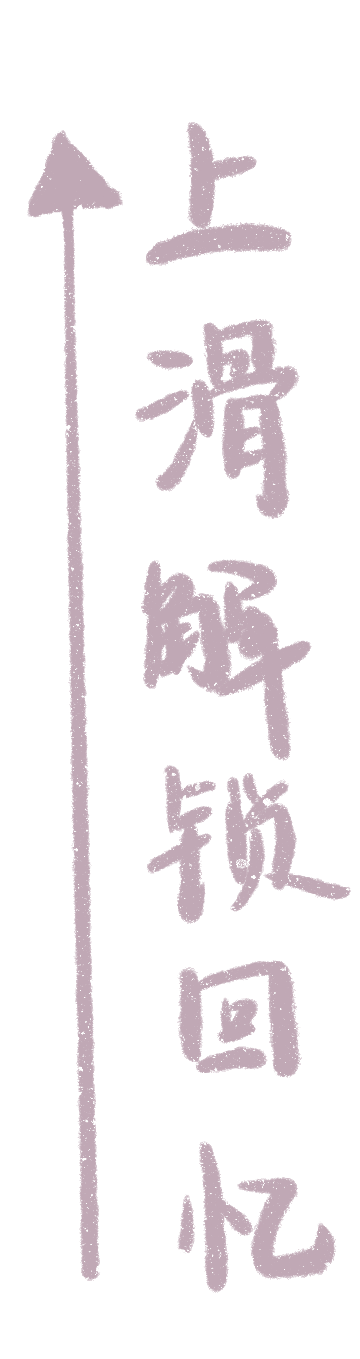 上滑解锁回忆